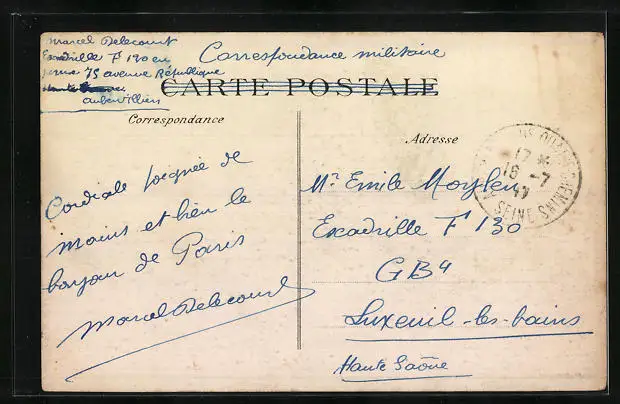 Marcel Delecourt
Escadrille F 130 en
75 avenue République
Aubervilliers
Correspondance militaire
CARTE POSTALE
Correspondance
Adresse
Cordiale poignée de
mains et bien le
bonjour de Paris
Marcel Delecourt
Mr Emile Moylen
Escadrille F 130
GB4
Luxeuil-les-bains
Haute Saône
QUATRE CHEMINS
17 *
16 - 7
17
SEINE